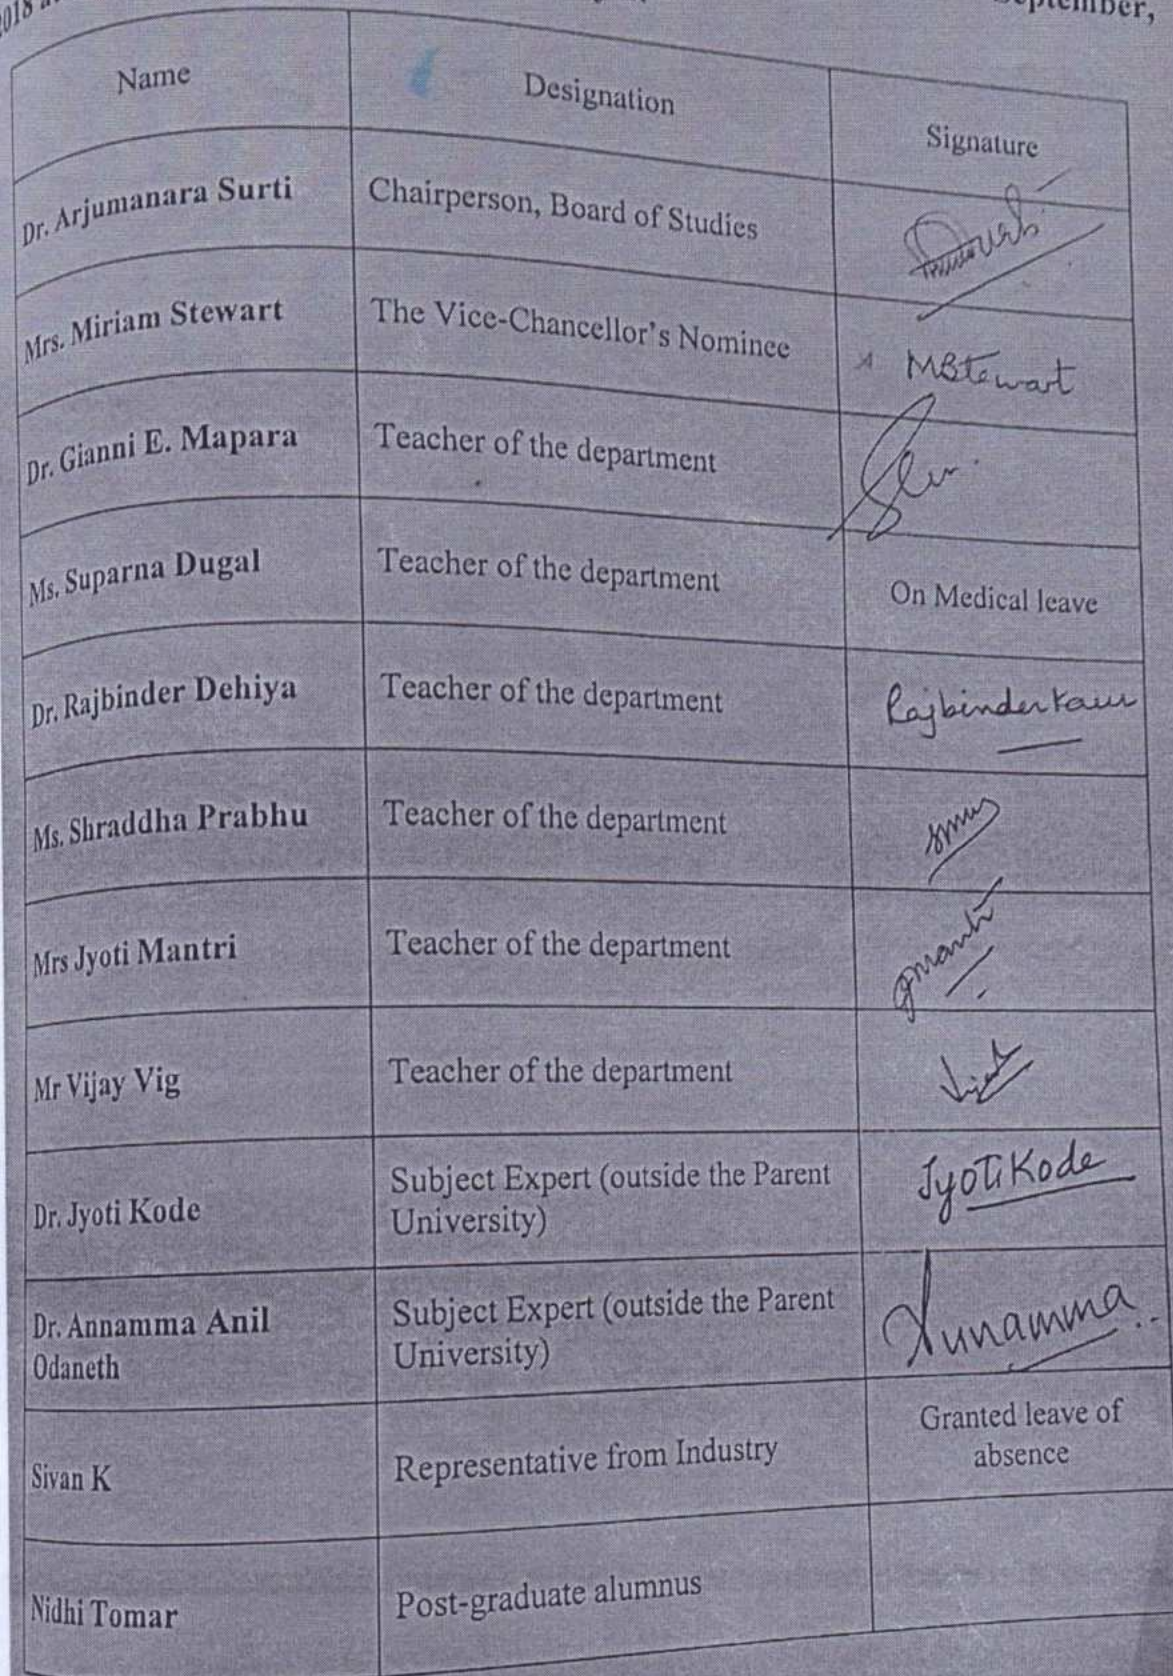 2018
September,
Name Designation Signature
Dr. Arjumanara Surti Chairperson, Board of Studies
Mrs. Miriam Stewart The Vice-Chancellor's Nominee MBStewart
Dr. Gianni E. Mapara Teacher of the department
Ms. Suparna Dugal Teacher of the department On Medical leave
Dr. Rajbinder Dehiya Teacher of the department Rajbinder Kaur
Ms. Shraddha Prabhu Teacher of the department
Mrs Jyoti Mantri Teacher of the department
Mr Vijay Vig Teacher of the department
Dr. Jyoti Kode Subject Expert (outside the Parent Jyoti Kode
University)
Dr. Annamma Anil Subject Expert (outside the Parent Annamma
Odaneth University)
Sivan K Representative from Industry Granted leave of
absence
Nidhi Tomar Post-graduate alumnus